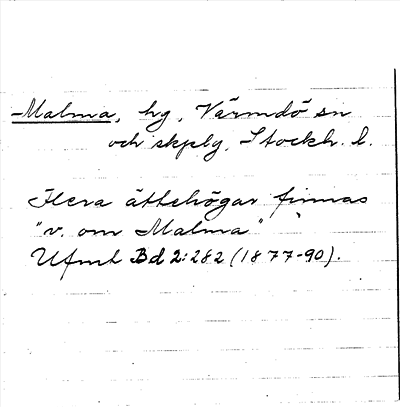 Malma, hg, Värmdö sn
och skplg, Stockh. l.
Flera ättehögar finnas
"v. om Malma"
Ufmt Bd 2:282 (1877-90).